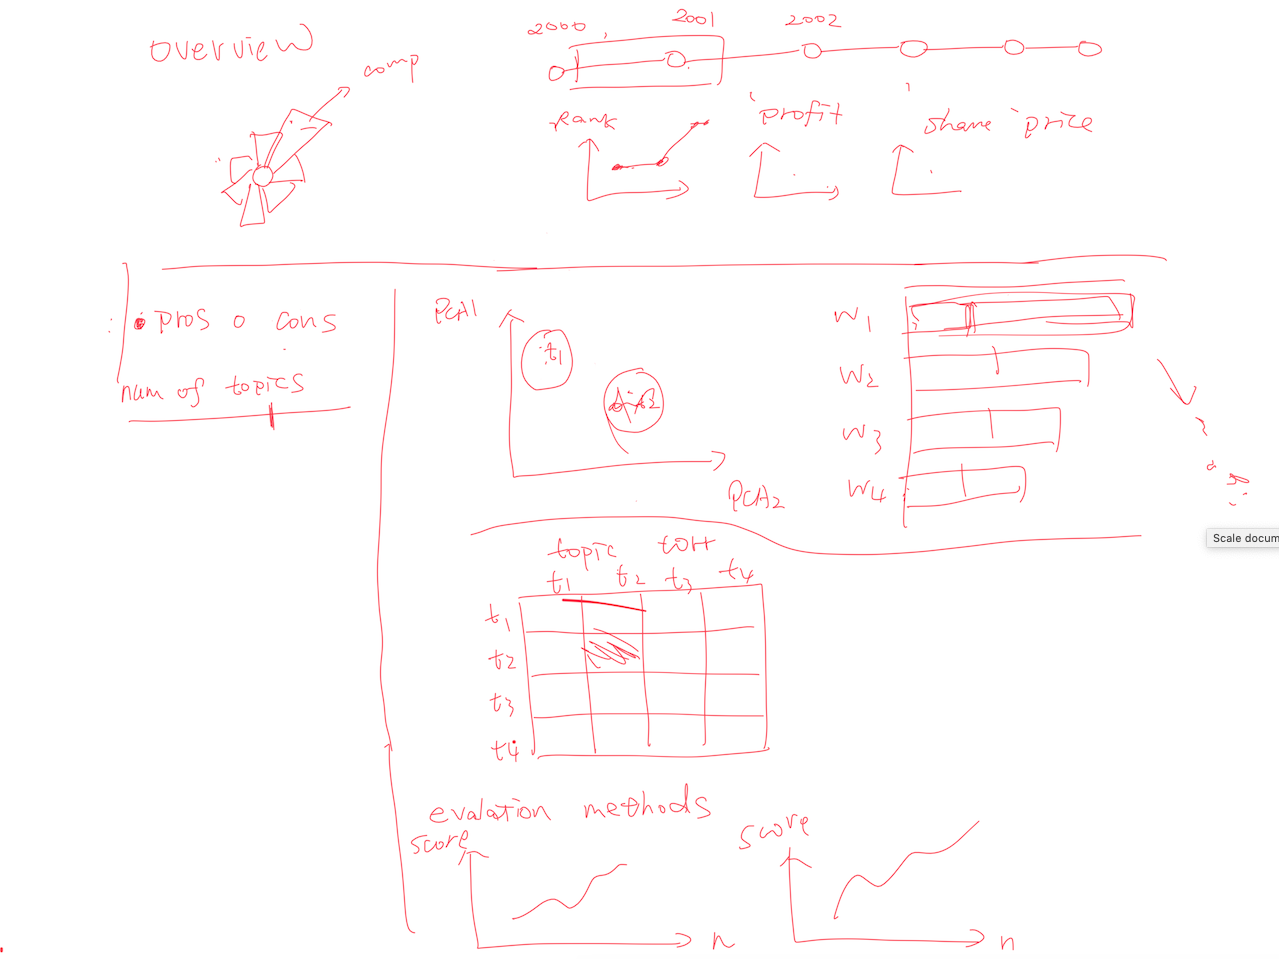 overview
comp
2000
2001
2002
Rank
profit
share price
pros o cons
num of topics
PCA1
t1
PCA2
W1
W2
W3
W4
topic corr
t1 t2 t3 t4
t1
t2
t3
t4
evalation methods
score
n
score
n
Scale docum